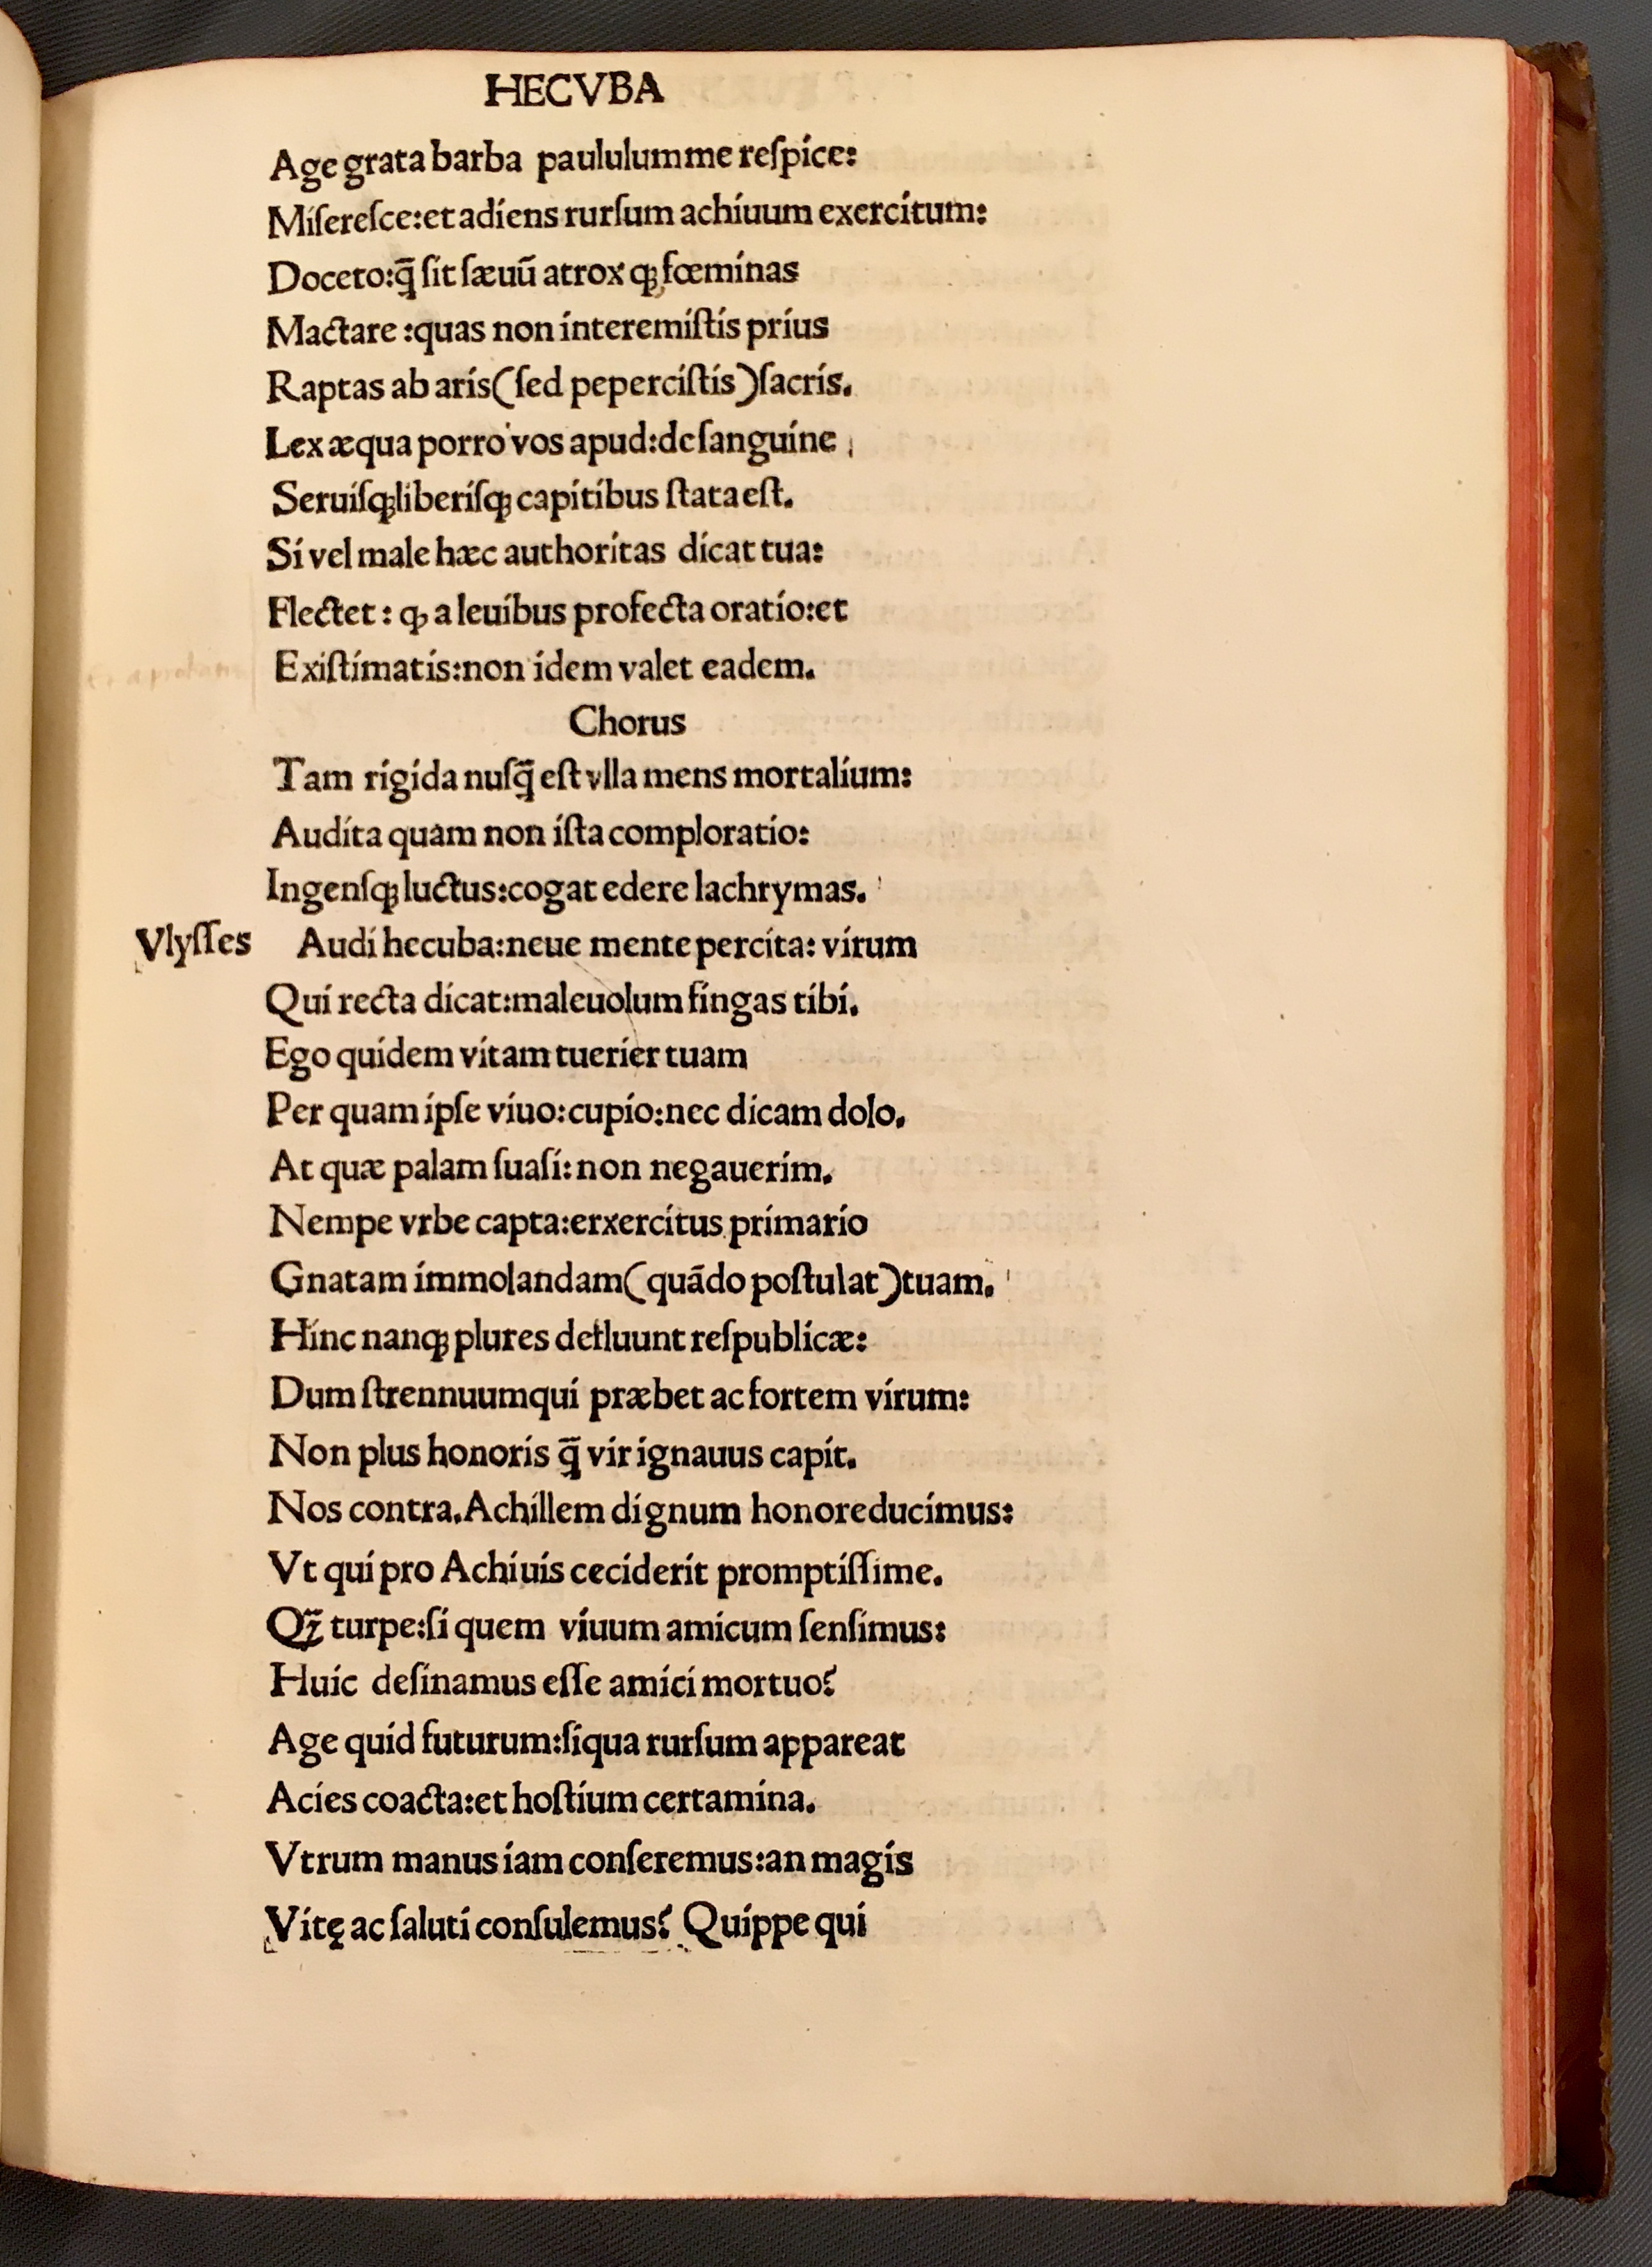 HECVBA
Age grata barba paululum me reſpice:
Miſereſce:et adiens rurſum achiuum exercitum:
Doceto:q̄ ſit ſæuū atrox qꝫ fœminas
Mactare :quas non interemiſtis prius
Raptas ab aris(ſed peperciſtis)ſacris.
Lex æqua porro vos apud:de ſanguine
Seruiſqꝫ liberiſqꝫ capitibus ſtata eſt.
Si vel male hæc authoritas dicat tua:
Flectet: ꝙ a leuibus profecta oratio:et
Exiſtimatis:non idem valet eadem.
Chorus
Tam rigida nuſq̄ eſt vlla mens mortalium:
Audita quam non iſta comploratio:
Ingenſqꝫ luctus:cogat edere lachrymas.
Vlyſſes Audi hecuba:neue mente percita: virum
Qui recta dicat:maleuolum fingas tibi.
Ego quidem vitam tuerier tuam
Per quam ipſe viuo:cupio:nec dicam dolo.
At quæ palam ſuaſi:non negauerim.
Nempe vrbe capta:erxercitus primario
Gnatam immolandam(quādo poſtulat)tuam.
Hinc nanqꝫ plures defluunt reſpublicæ:
Dum ſtrennuumqui præbet ac fortem virum:
Non plus honoris q̄ vir ignauus capit.
Nos contra.Achillem dignum honore ducimus:
Vt qui pro Achiuis ceciderit promptiſſime.
Qꝫ̄ turpe:ſi quem viuum amicum ſenſimus:
Huic deſinamus eſſe amici mortuo?
Age quid futurum:ſiqua rurſum appareat
Acies coacta:et hoſtium certamina.
Vtrum manus iam conſeremus:an magis
Vitę ac ſaluti conſulemus? Quippe qui